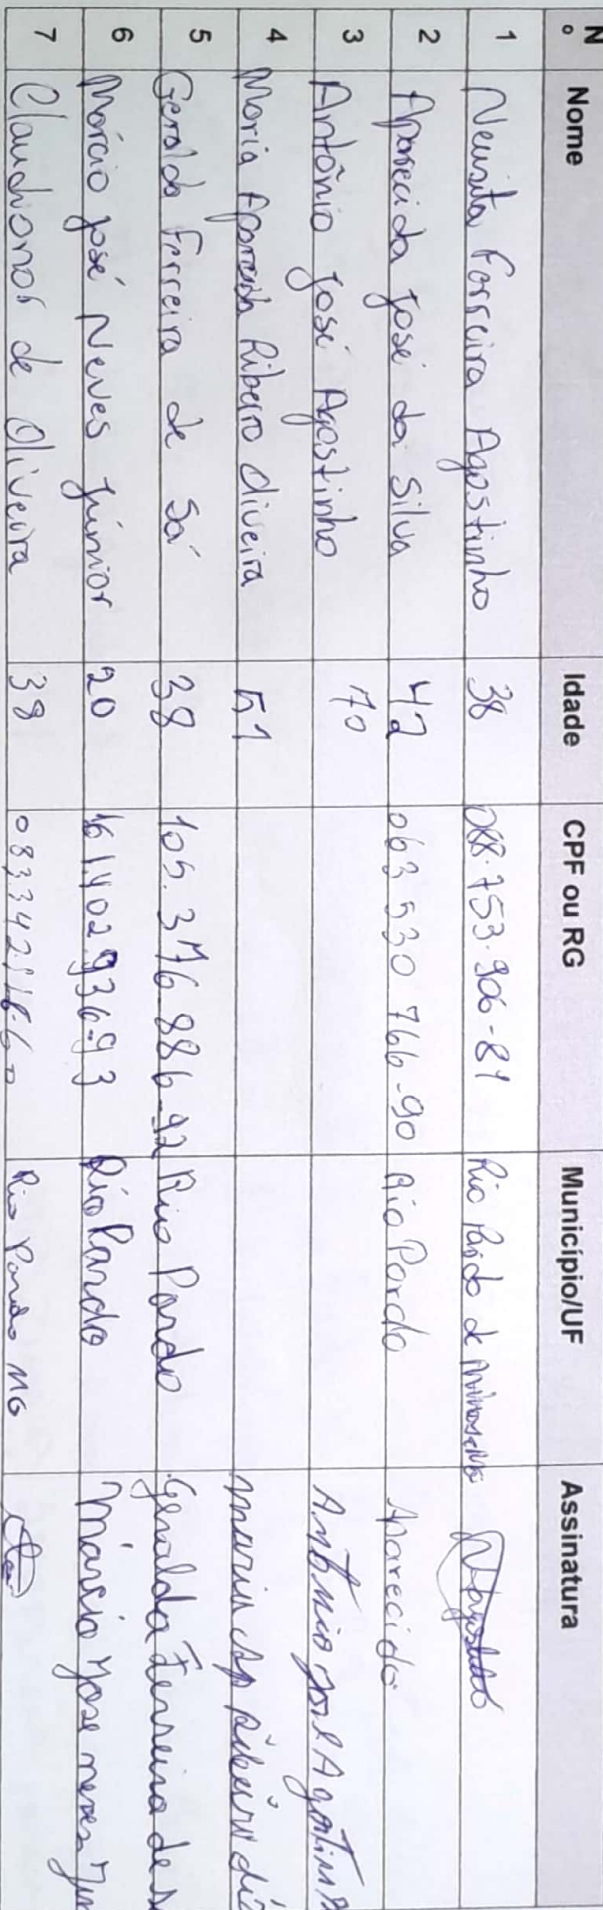 Nº Nome Idade CPF ou RG Município/UF Assinatura
1 Neusita Ferreira Agostinho 38 088.753.906-81 Rio Pardo de Minas
2 Aparecida José da Silva 42 063 530 766-90 Rio Pardo Aparecida
3 Antônio José Agostinho 70 Antônio José Agostinh
4 Maria Aparecida Ribeiro Oliveira 51 maria Ap Ribeiro
5 Geralda Ferreira de Sá 38 105.376.886-92 Rio Pardo Geralda Ferreira de
6 Márcio José Neves Júnior 20 Rio Pardo Márcio Jose neves
7 Claudionor de Oliveira 38 Rio Pardo MG